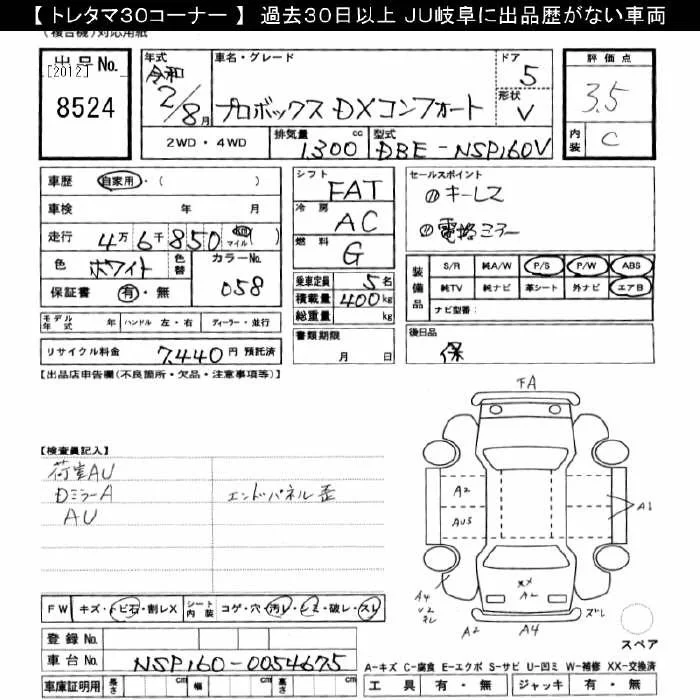 【 トレタマ30コーナー 】 過去30日以上 JU岐阜に出品歴がない車両
(複合機)対応用紙
出品No.
[2012]
8524
年式 令和 2/8月
車名・グレード
プロボックス DXコンフォート
ドア 5
形状 V
評価点
3.5
内装 C
2WD・4WD
排気量 1300 cc
型式 DBE-NSP160V
車歴 自家用・( )
車検 年 月
走行 4万6千850 km マイル( )
色 ホワイト 色替
カラーNo. 058
保証書 有・無
シフト FAT
冷房 AC
燃料 G
乗車定員 5名
積載量 400kg
総重量 kg
セールスポイント
①キーレス
②電格ミラー
装備品
S/R 純A/W P/S P/W ABS
純TV 純ナビ 革シート 外ナビ エアB
ナビ型番:
モデル年式 年 ハンドル 左・右 ディーラー・並行
リサイクル料金 7,440円 預託済
書類期限
月 日
後日品
保
【出品店申告欄(不良箇所・欠品・注意事項等)】
FA
【検査員記入】
荷室AU
DミラーA
エンドパネル歪
AU
A2
AU3
A1
XX
A2
A4
A2
A4
ズレ
スペア
FW キズ・トビ石・割レX
シート内装 コゲ・穴・汚レ・シミ・破レ・スレ
登録No.
車台No. NSP160-0054675
A-キズ C-腐食 E-エクボ S-サビ U-凹ミ W-補修 XX-交換済
車庫証明用 長さ cm 幅 cm 高さ cm
工具 有・無 ジャッキ 有・無